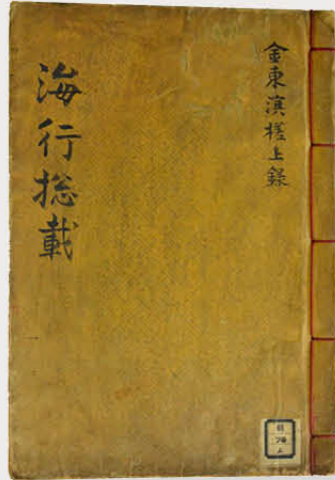 金東溟槎上錄
海行摠載